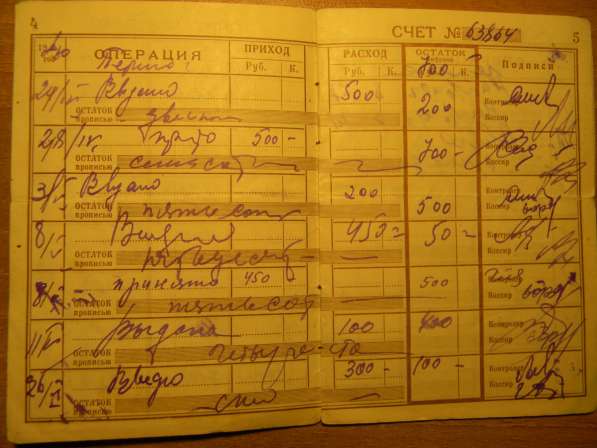 4
СЧЕТ № 63864
5
ОПЕРАЦИЯ
ПРИХОД
РАСХОД
ОСТАТОК
Подписи
Руб.
К.
Руб.
К.
700
Выдано
500
200
Контролер
Кассир
ОСТАТОК
прописью
двести
28/IV
принято
500 -
700 -
Контролер
Кассир
ОСТАТОК
прописью
семьсот
3/V
Выдано
200
500
Контролер
Кассир
ОСТАТОК
прописью
пятьсот
8/V
Выдано
450 =
50 =
Контролер
Кассир
ОСТАТОК
прописью
пятьдесят
принято
450
500
Кассир
ОСТАТОК
прописью
пятьсот
11/V
Выдано
100
400
Контролер
Кассир
ОСТАТОК
прописью
четыреста
Выдано
300 -
100 -
Контролер
Кассир
ОСТАТОК
прописью
сто